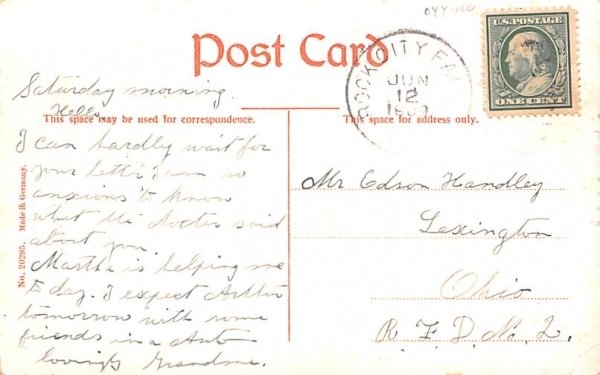 044-160
U.S. POSTAGE
ONE CENT
Post Card
ROCK CITY FA
JUN
12
1909
Saturday morning.
Hello
This space may be used for correspondence.
This space for address only.
I can hardly wait for
your letter I am so
anxious to know
what the doctor said
about you.
Martha is helping me
to day. I expect Arthur
tomorrow with some
friends in a Auto
lovingly Grandma.
No. 20295. Made in Germany.
Mr Edson Handley
Lexington
Ohio
R. F. D. No. 2.